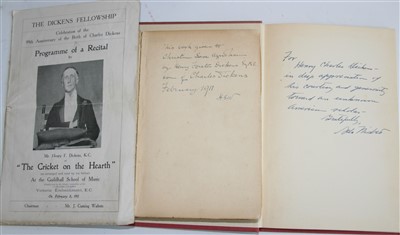 THE DICKENS FELLOWSHIP
Celebration of the
Anniversary of the Birth of Charles Dickens
Programme of a Recital
by
Mr. Henry F. Dickens, K.C.
"The Cricket on the Hearth"
At the Guildhall School of Music
Victoria Embankment, E.C.
Chairman Mr. J. Cuming Walters
This book given to
by Henry Charles Dickens
son of Charles Dickens
February 1911
For
Henry Charles Dickens
in deep appreciation of
his courtesy and generosity
toward an unknown
American visitor